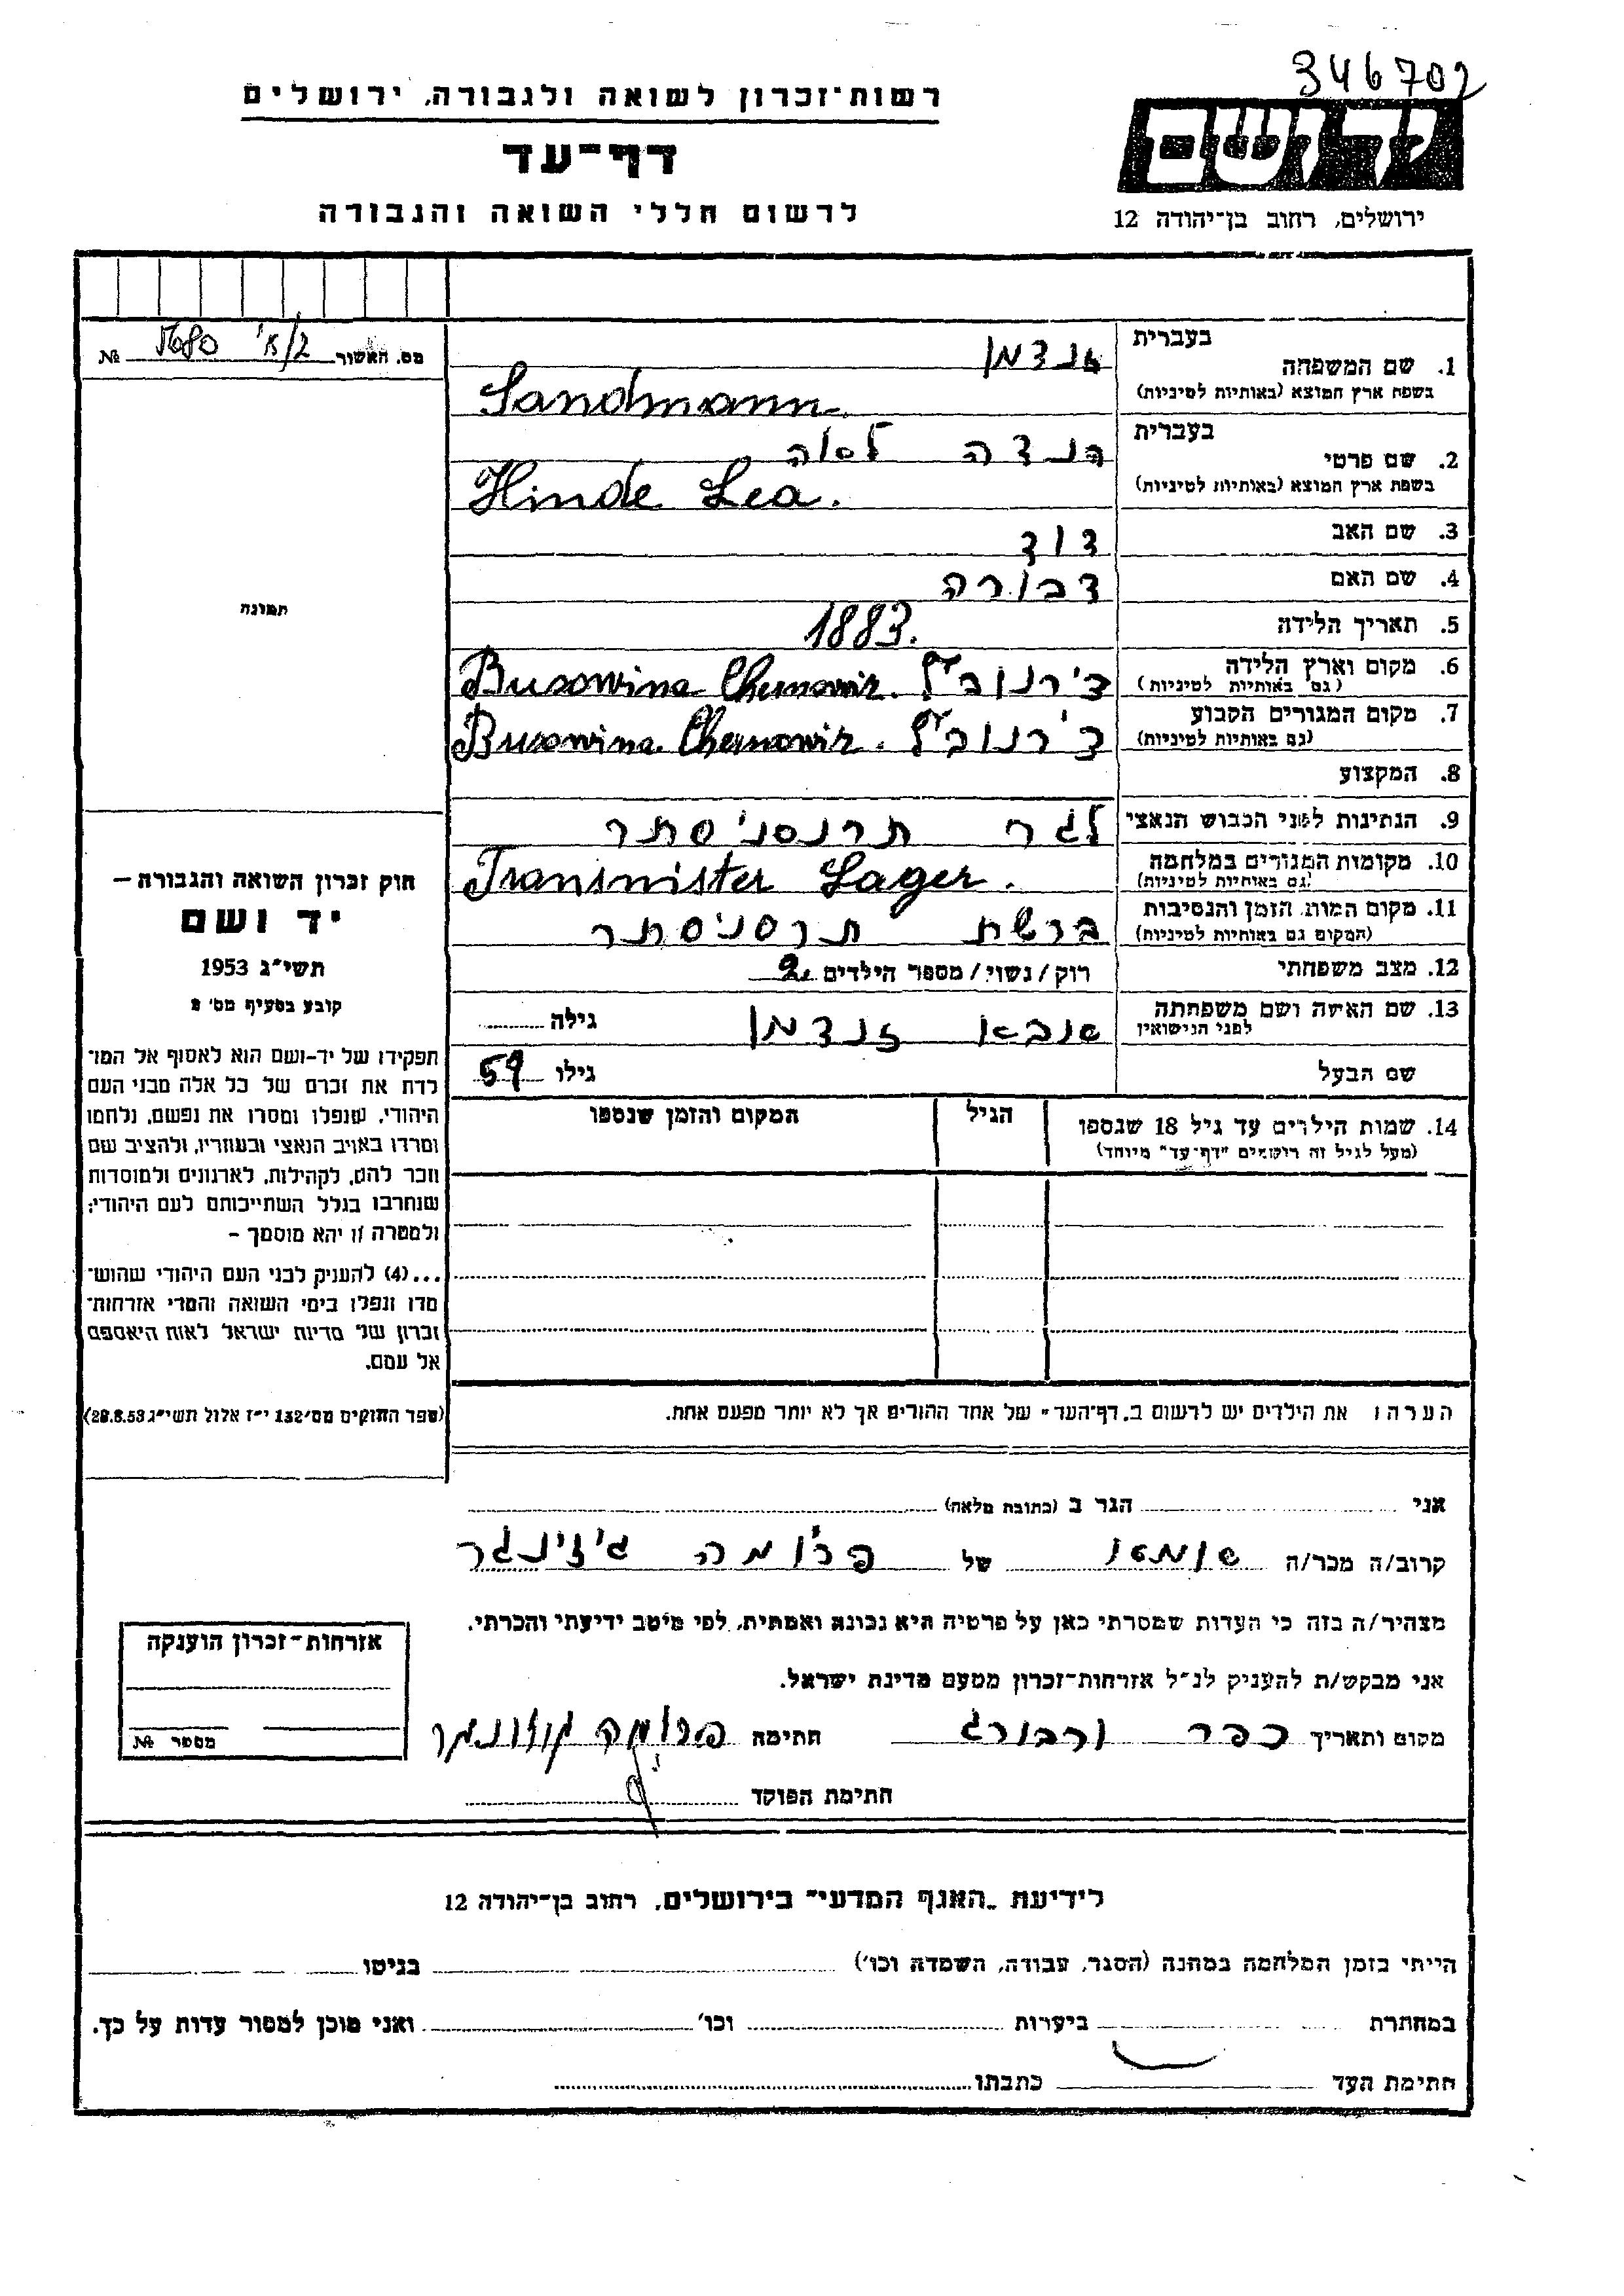 346702
רשות־זכרון לשואה ולגבורה, ירושלים
ידושם
דף־עד
לרשום חללי השואה והגבורה
ירושלים, רחוב בן־יהודה 12
מס. האשור №
1. שם המשפחה
בעברית
בשפת ארץ המוצא (באותיות לטיניות)
Sandmann
2. שם פרטי
בעברית
הנדה לאה
בשפת ארץ המוצא (באותיות לטיניות)
Hinde Lea.
3. שם האב
דוד
4. שם האם
דבורה
5. תאריך הלידה
1883.
6. מקום וארץ הלידה
(גם באותיות לטיניות)
צ'רנוביץ Busowina Chernowir.
7. מקום המגורים הקבוע
(גם באותיות לטיניות)
צ'רנוביץ Busowina Chernowir.
8. המקצוע
9. הנתינות לפני הכבוש הנאצי
לגר תרנסניסתר
10. מקומות המגורים במלחמה
(גם באותיות לטיניות)
Transnister Lager.
11. מקום המות, הזמן והנסיבות
(המקום גם באותיות לטיניות)
תרסניסתר
12. מצב משפחתי
רוק/נשוי/מספר הילדים 2.
13. שם האשה ושם משפחתה
לפני הנישואין
זנדמן גילה
שם הבעל
גילו 59
14. שמות הילדים עד גיל 18 שנספו
(מעל לגיל זה רושמים "דף־עד" מיוחד)
הגיל
המקום והזמן שנספו
תמונה
חוק זכרון השואה והגבורה –
יד ושם
תשי"ג 1953
קובע בסעיף מס' 2
תפקידו של יד-ושם הוא לאסוף אל המו־
לדת את זכרם של כל אלה מבני העם
היהודי, שנפלו ומסרו את נפשם, נלחמו
ומרדו באויב הנאצי ובעוזריו, ולהציב שם
וזכר להם, לקהילות, לארגונים ולמוסדות
שנחרבו בגלל השתייכותם לעם היהודי;
ולמטרה זו יהא מוסמך –
...(4) להעניק לבני העם היהודי שהוש־
מדו ונפלו בימי השואה והמרי אזרחות־
זכרון של מדינת ישראל לאות היאספם
אל עמם.
(ספר החוקים מס' 132 י"ז אלול תשי"ג 28.8.53)
הערה: את הילדים יש לרשום ב„דף־העד" של אחד ההורים אך לא יותר מפעם אחת.
אני הגר ב (כתובת מלאה)
קרוב/ה מכר/ה של פרומה
מצהיר/ה בזה כי העדות שמסרתי כאן על פרטיה היא נכונה ואמתית, לפי מיטב ידיעתי והכרתי.
אני מבקש/ת להעניק לנ"ל אזרחות־זכרון מטעם מדינת ישראל.
מקום ותאריך כפר ורבורג חתימה פרומה
חתימת הפוקד
אזרחות־זכרון הוענקה
מספר №
לידיעת „האגף המדעי" בירושלים, רחוב בן־יהודה 12
הייתי בזמן המלחמה במחנה (הסגר, עבודה, השמדה וכו') בגיטו
במחתרת ביערות וכו' ואני מוכן למסור עדות על כך.
חתימת העד כתבתו